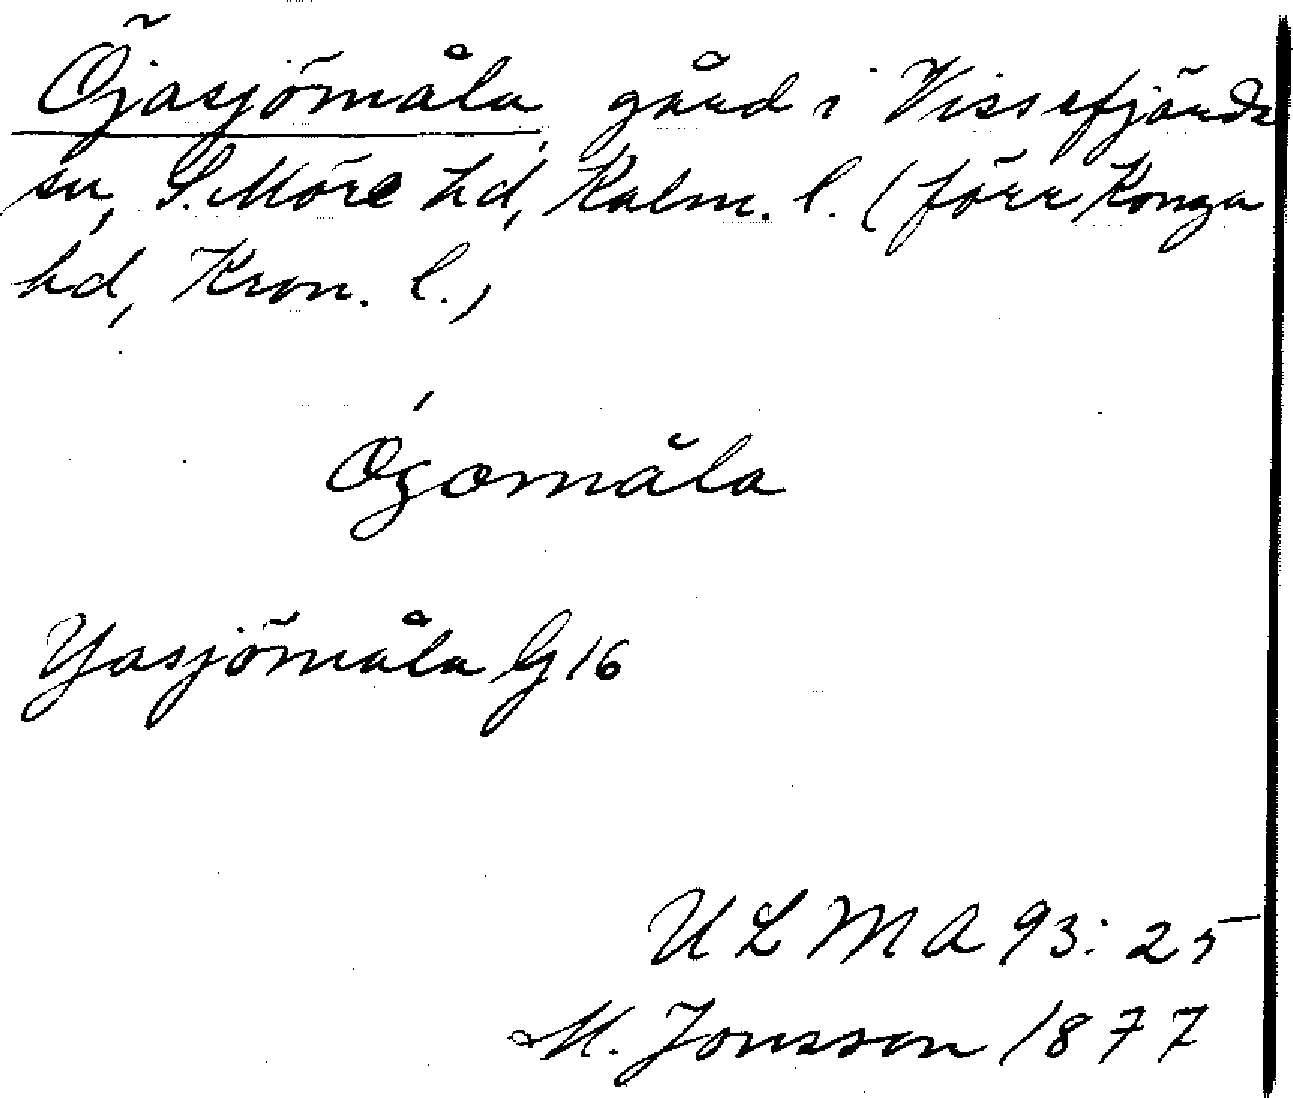 Öjasjömåla, gård i Vissefjärda
sn, S. Möre hd, Kalm. l. (förr Konga
hd, Kron. l.)
Ógomåla
Yasjömåla G 16
ULMA 93:25
M. Jonsson 1877